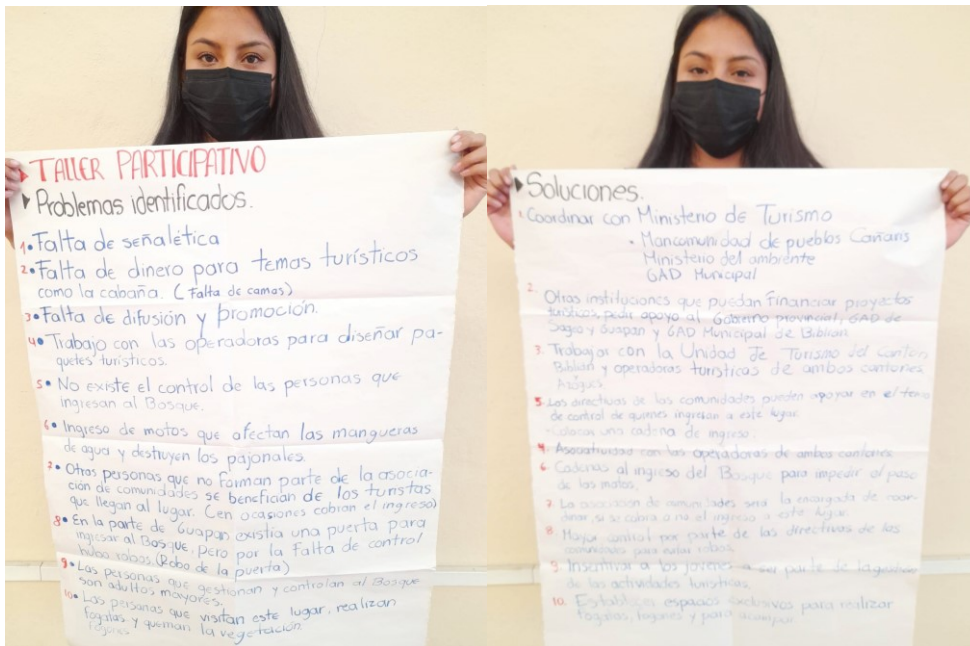 TALLER PARTICIPATIVO
Problemas identificados.
1. Falta de señalética
2. Falta de dinero para temas turísticos
como la cabaña. (Falta de camas)
3. Falta de difusión y promoción.
4. Trabajo con las operadoras para diseñar pa-
quetes turísticos.
5. No existe el control de las personas que
ingresan al Bosque.
6. Ingreso de motos que afectan las mangueras
de agua y destruyen los pajonales.
7. Otras personas que no forman parte de la asocia-
ción de comunidades se benefician de los turistas
que llegan al lugar. (en ocasiones cobran el ingreso)
8. En la parte de Guapan existía una puerta para
ingresar al Bosque, pero por la falta de control
hubo robos. (Robo de la puerta)
9. Las personas que gestionan y controlan al Bosque
son adultos mayores.
10. Las personas que visitan este lugar, realizan
fogatas y queman la vegetación.
fogones
Soluciones.
1. Coordinar con Ministerio de Turismo
Mancomunidad de pueblos Cañaris
Ministerio del ambiente
GAD Municipal
2. Otras instituciones que puedan financiar proyectos
turísticos, pedir apoyo al Gobierno provincial, GAD de
Sageo y Guapan y GAD Municipal de Biblian
3. Trabajar con la Unidad de Turismo del Cantón
Biblian y operadoras turísticas de ambos cantones
Azogues
5. Los directivos de las comunidades pueden apoyar en el tema
de control de quienes ingresan a este lugar.
una cadena de ingreso.
4. Asociatividad con las operadoras de ambos cantones
6. Cadenas al ingreso del Bosque para impedir el paso
de las motos.
7. La asociación de comunidades será la encargada de coor-
dinar, si se cobra o no el ingreso a este lugar.
8. Mayor control por parte de las directivas de las
comunidades para evitar robos.
9. Incentivar a los jóvenes a ser parte de la gestión
de las actividades turísticas.
10. Establecer espacios exclusivos para realizar
fogatas, fogones y para acampar.